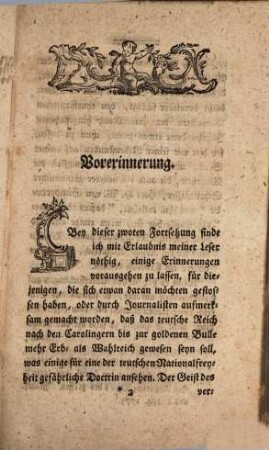 Vorerinnerung.
Bey dieser zwoten Fortsetzung finde
ich mit Erlaubnis meiner Leser
nöthig, einige Erinnerungen
vorausgehen zu lassen, für die-
jenigen, die sich etwan daran möchten gestos-
sen haben, oder durch Journalisten aufmerk-
sam gemacht worden, daß das teutsche Reich
nach den Carolingern bis zur goldenen Bulle
mehr Erb- als Wahlreich gewesen seyn soll,
was einige für eine der teutschen Nationalfrey-
heit gefährliche Doctrin ansehen. Der Geist des
* 2 ver-